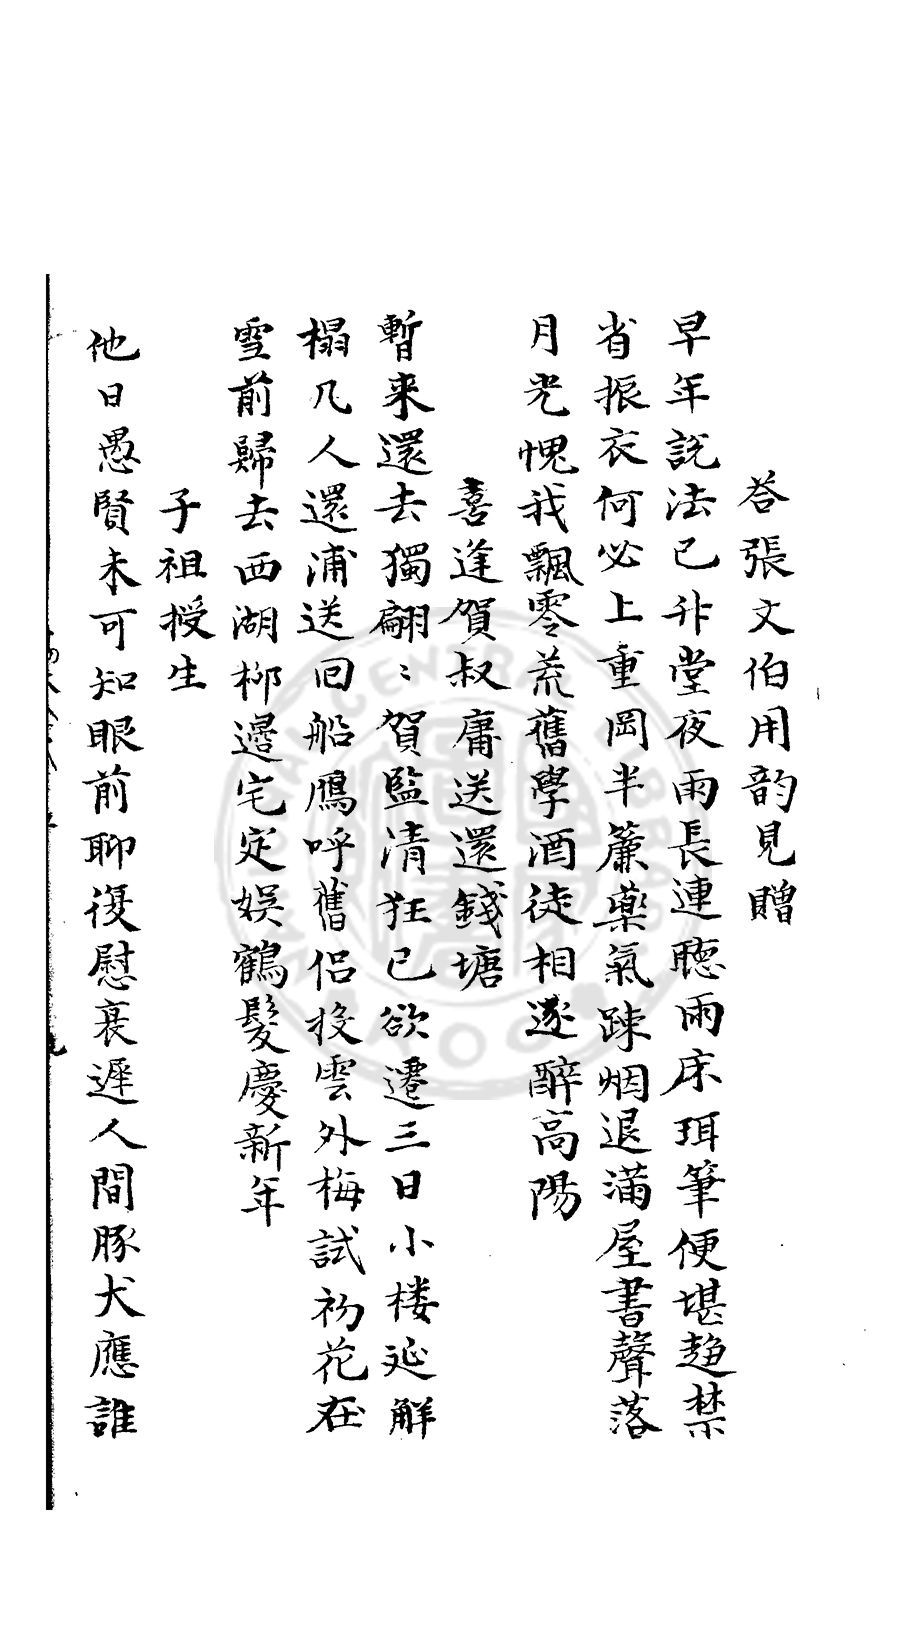 荅張文伯用韵見贈
早年說法已升堂夜雨長連聴雨床珥筆便堪趋禁
省振衣何必上重岡半簾藥氣踈烟退滿屋書聲落
月光愧我飄零荒舊學酒徒相逐醉高陽
喜逢賀叔庸送還錢塘
暫来還去獨翩：賀監清狂已欲遷三日小楼延解
榻几人還浦送回船鴈呼舊侣投雲外梅試初花在
雪前歸去西湖柳邉宅定娯鶴髮慶新年
子祖授生
他日愚賢未可知眼前聊復慰衰遲人間豚犬應誰